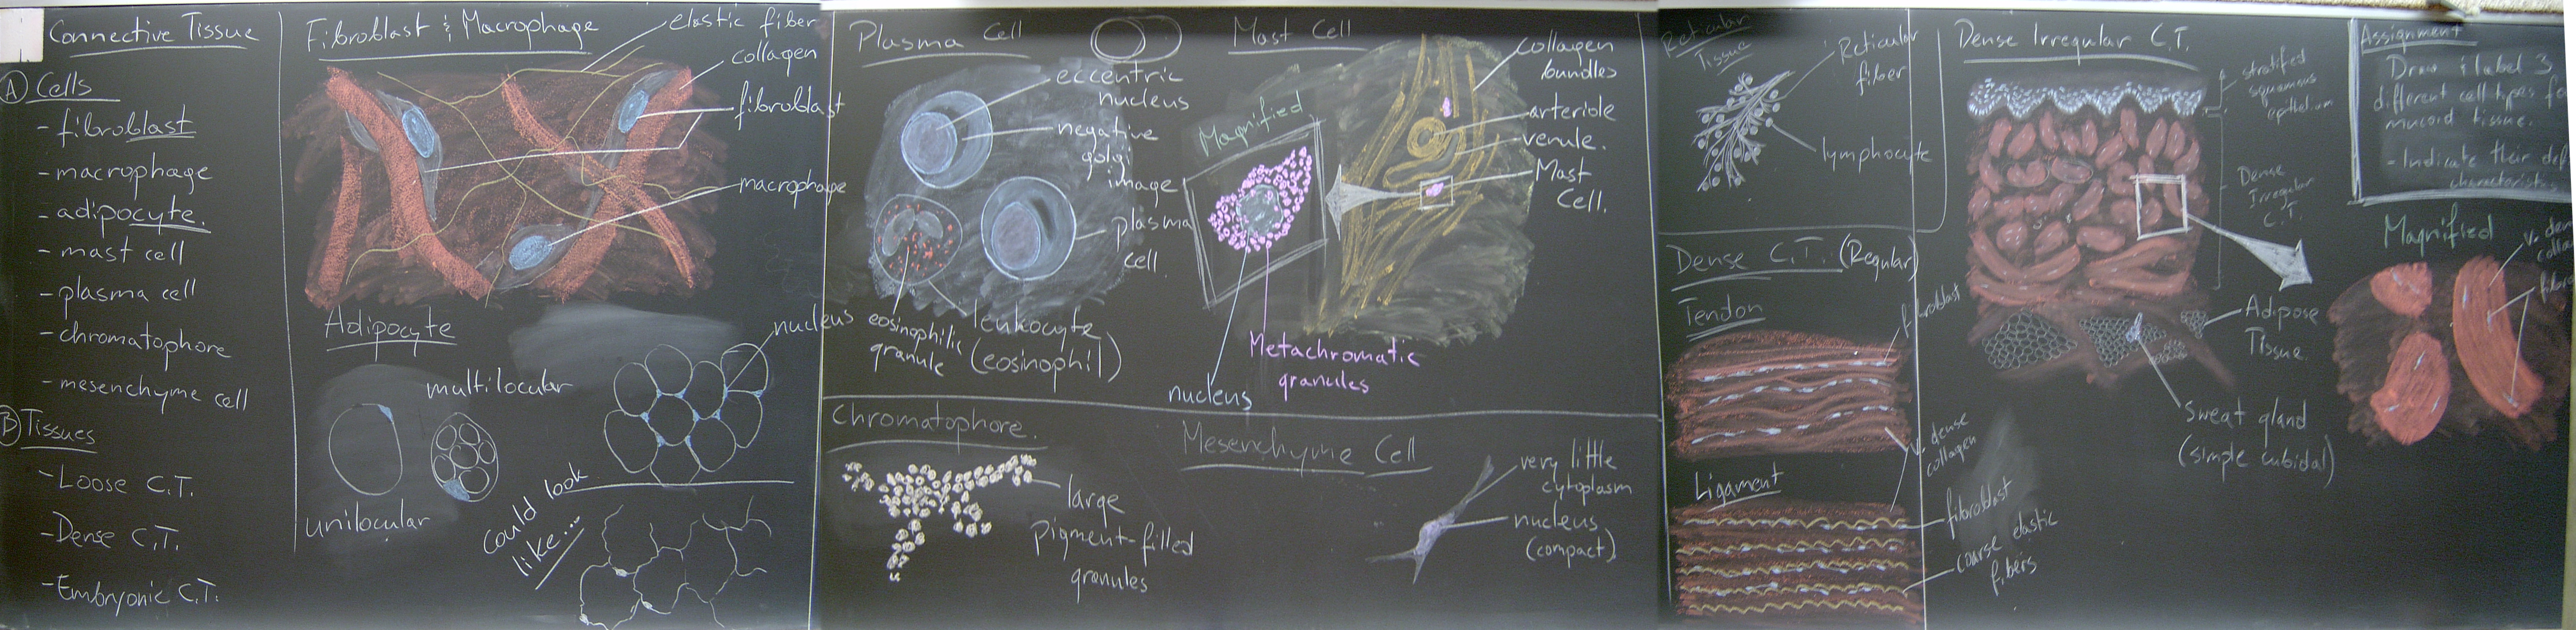 Connective Tissue
A Cells
- fibroblast
- macrophage
- adipocyte.
- mast cell
- plasma cell
- chromatophore
- mesenchyme cell
B Tissues
- Loose C.T.
- Dense C.T.
- Embryonic C.T.
Fibroblast & Macrophage
elastic fiber
collagen
fibroblast
macrophage
Adipocyte
nucleus
multilocular
unilocular
could look
like...
Plasma Cell
eccentric
nucleus
negative
golgi
image
plasma
cell.
eosinophilic
granule
leukocyte
(eosinophil)
Mast Cell
Magnified
collagen
bundles
arteriole
venule.
Mast
Cell.
Metachromatic
granules
nucleus
Chromatophore.
large
pigment-filled
granules
Mesenchyme Cell
very little
cytoplasm
nucleus
(compact)
Reticular
Tissue
Reticular
fiber
lymphocyte
Dense C.T. (Regular)
Tendon
fibroblast
v. dense
collagen
Ligament
fibroblast
coarse elastic
fibers
Dense Irregular C.T.
stratified
squamous
epithelium
Dense
Irregular
C.T.
Adipose
Tissue.
Sweat gland
(simple cubidal)
Assignment
Draw & label 3
different cell types
mucoid tissue.
- Indicate their
Magnified
v. den